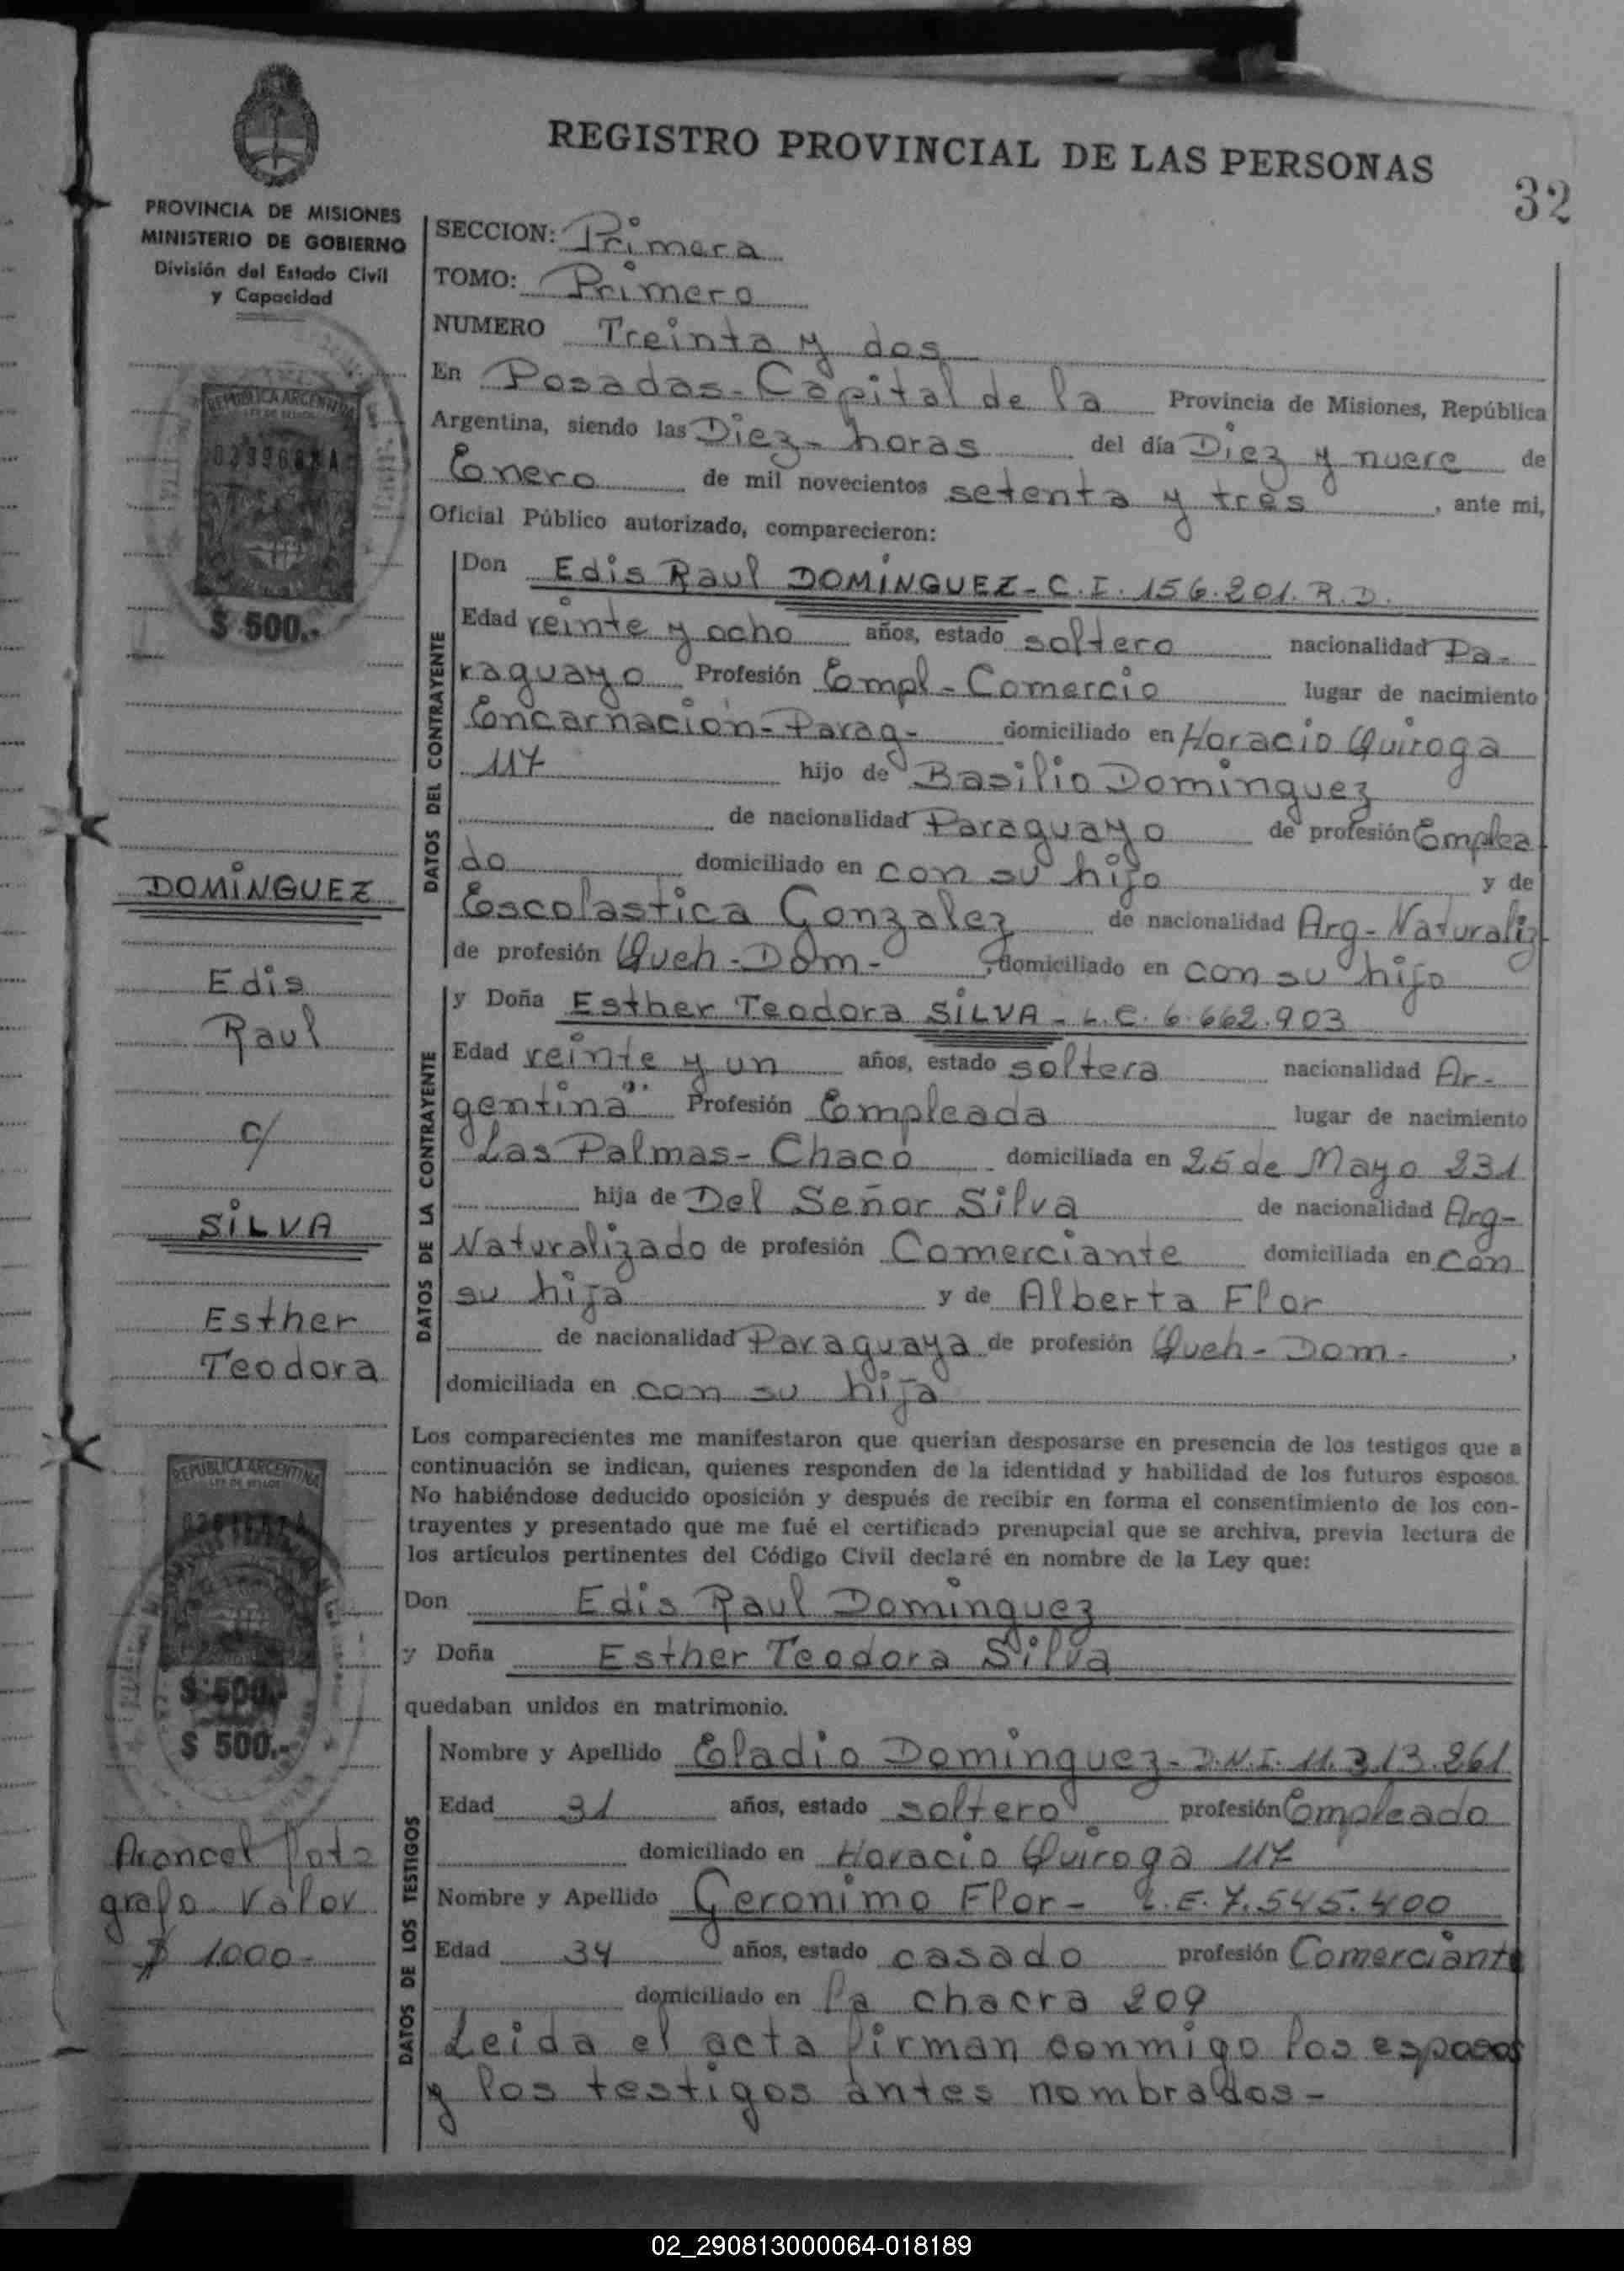 REGISTRO PROVINCIAL DE LAS PERSONAS
32
PROVINCIA DE MISIONES
MINISTERIO DE GOBIERNO
División del Estado Civil
y Capacidad
REPUBLICA ARGENTINA
LEY DE SELLOS
$ 500.-
DOMINGUEZ
Edis
Raul
c/
SILVA
Esther
Teodora
REPUBLICA ARGENTINA
LEY DE SELLOS
$ 500.-
$ 500.-
Arancel foto
grafo valor
$ 1000-
SECCION: Primera
TOMO: Primero
NUMERO Treinta y dos
En Posadas - Capital de la Provincia de Misiones, República
Argentina, siendo las Diez - horas del día Diez y nueve de
Enero de mil novecientos setenta y tres, ante mi,
Oficial Público autorizado, comparecieron:
DATOS DEL CONTRAYENTE
Don Edis Raul DOMINGUEZ - C.I. 156.201. R.D.
Edad veinte y ocho años, estado soltero nacionalidad Pa-
raguayo Profesión Empl - Comercio lugar de nacimiento
Encarnación - Parag - domiciliado en Horacio Quiroga
117 hijo de Basilio Dominguez
de nacionalidad Paraguayo de profesión Emplea
do domiciliado en con su hijo y de
Escolastica Gonzalez de nacionalidad Arg - Naturaliz
de profesión Queh - Dom - , domiciliado en con su hijo
DATOS DE LA CONTRAYENTE
y Doña Esther Teodora SILVA - L.C. 6.662.903
Edad veinte y un años, estado soltera nacionalidad Ar-
gentina". Profesión Empleada lugar de nacimiento
Las Palmas - Chaco domiciliada en 25 de Mayo 231
hija de Del Señor Silva de nacionalidad Arg-
Naturalizado de profesión Comerciante domiciliada en con
su hija y de Alberta Flor
de nacionalidad Paraguaya de profesión Queh - Dom - ,
domiciliada en con su hija
Los comparecientes me manifestaron que querían desposarse en presencia de los testigos que a
continuación se indican, quienes responden de la identidad y habilidad de los futuros esposos.
No habiéndose deducido oposición y después de recibir en forma el consentimiento de los con-
trayentes y presentado que me fué el certificado prenupcial que se archiva, previa lectura de
los artículos pertinentes del Código Civil declaré en nombre de la Ley que:
Don Edis Raul Dominguez
y Doña Esther Teodora Silva
quedaban unidos en matrimonio.
DATOS DE LOS TESTIGOS
Nombre y Apellido Eladio Dominguez - D.N.I. 11.313.261
Edad 31 años, estado soltero profesión Empleado
domiciliado en Horacio Quiroga 117
Nombre y Apellido Geronimo Flor - L.E. 7.545.400
Edad 34 años, estado casado profesión Comerciante
domiciliado en la chacra 209
Leida el acta firman conmigo los esposos
y los testigos antes nombrados -
02_290813000064-018189